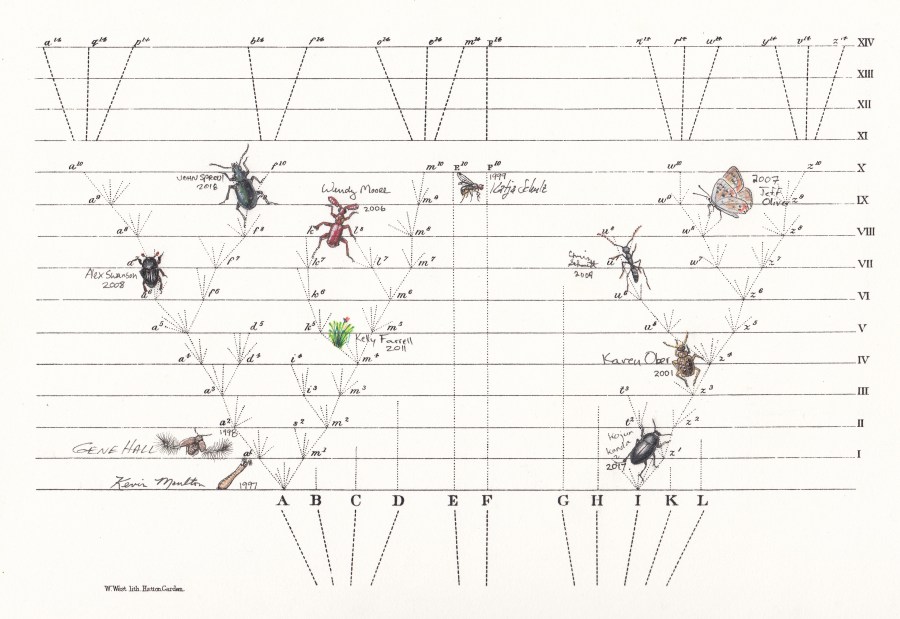 a¹⁴ q¹⁴ p¹⁴ b¹⁴ f¹⁴ o¹⁴ e¹⁴ m¹⁴ F¹⁴ n¹⁴ r¹⁴ w¹⁴ y¹⁴ v¹⁴ z¹⁴ XIV
XIII
XII
XI
a¹⁰ f¹⁰ m¹⁰ E¹⁰ F¹⁰ w¹⁰ z¹⁰ X
JOHN SPROUL
2016
Wendy Moore
2006
1999
Katja Schulz
2007
Jeff
Oliver
a⁹ m⁹ w⁹ z⁹ IX
a⁸ f⁸ k⁸ l⁸ m⁸ u⁸ w⁸ z⁸ VIII
Craig
Schmidt
2009
a⁷ f⁷ k⁷ l⁷ m⁷ u⁷ w⁷ z⁷ VII
Alex Swanson
2008
a⁶ f⁶ k⁶ m⁶ u⁶ z⁶ VI
a⁵ d⁵ k⁵ m⁵ u⁵ z⁵ V
Kelly Farrell
2011
a⁴ d⁴ i⁴ m⁴ z⁴ IV
Karen Ober
2001
a³ i³ m³ t³ z³ III
a² s² m² t² z² II
1998
GENE HALL
Kojun
Kanda
2017
a¹ m¹ z¹ I
Kevin Moulton
1997
A B C D E F G H I K L
W. West lith. Hatton Garden.